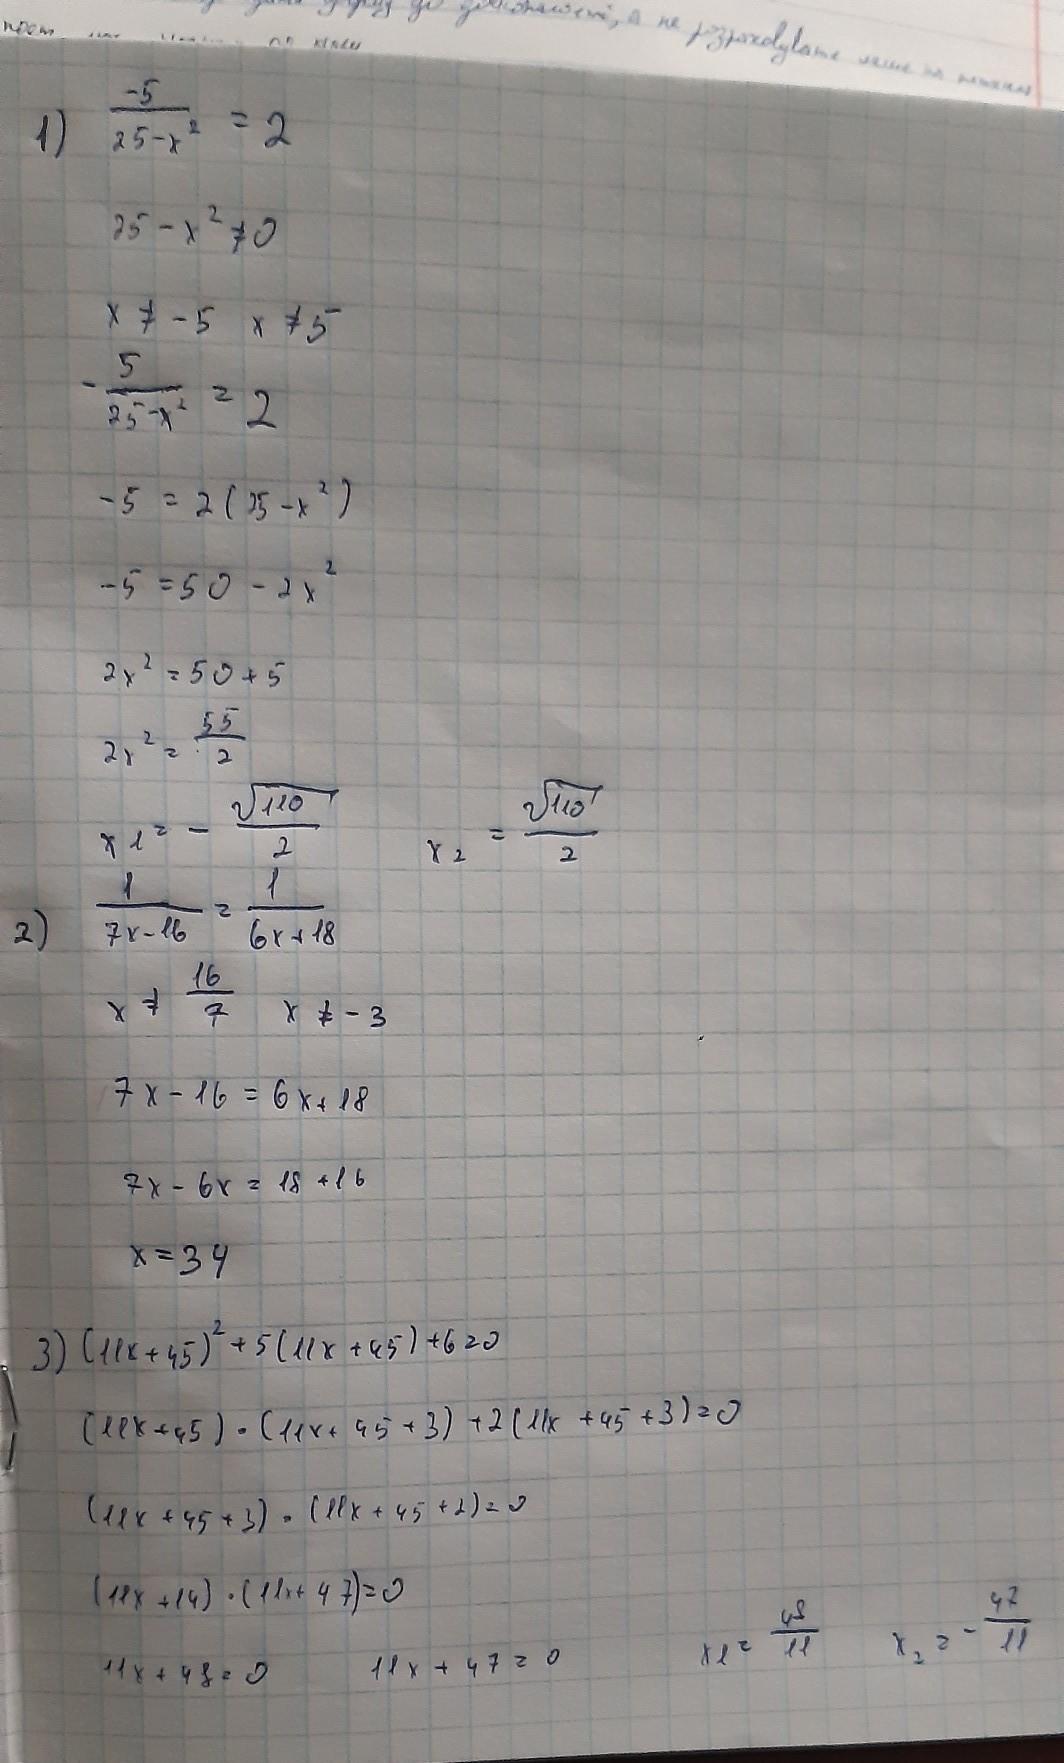 а не розраховувати лише на
1) -5/(25-x²) = 2
25-x² ≠ 0
x ≠ -5 x ≠ 5
-5/(25-x²) = 2
-5 = 2(25-x²)
-5 = 50 - 2x²
2x² = 50+5
2x² = 55/2
x1 = -√110/2 x₂ = √110/2
2) 1/(7x-16) = 1/(6x+18)
x ≠ 16/7 x ≠ -3
7x-16 = 6x+18
7x-6x = 18+16
x = 34
3) (11x+45)²+5(11x+45)+6=0
(11x+45)·(11x+45+3)+2(11x+45+3)=0
(11x+45+3)·(11x+45+2)=0
(11x+14)·(11x+47)=0
11x+48=0 11x+47=0 x1= 48/11 x₂=-47/11